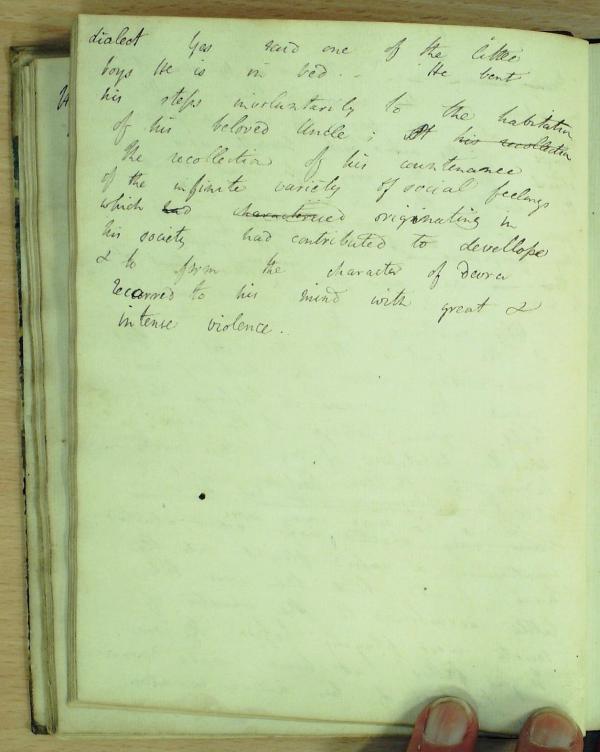 dialect Yes said one of the little
boys He is in bed. – He bent
his steps involuntarily to the habitation
of his beloved Uncle; his recollection
The recollection of his countenance
of the infinite variety of social feelings
which had characterised originating in
his society had contributed to devellope
& to form the character of
recurred to his mind with great &
intense violence.